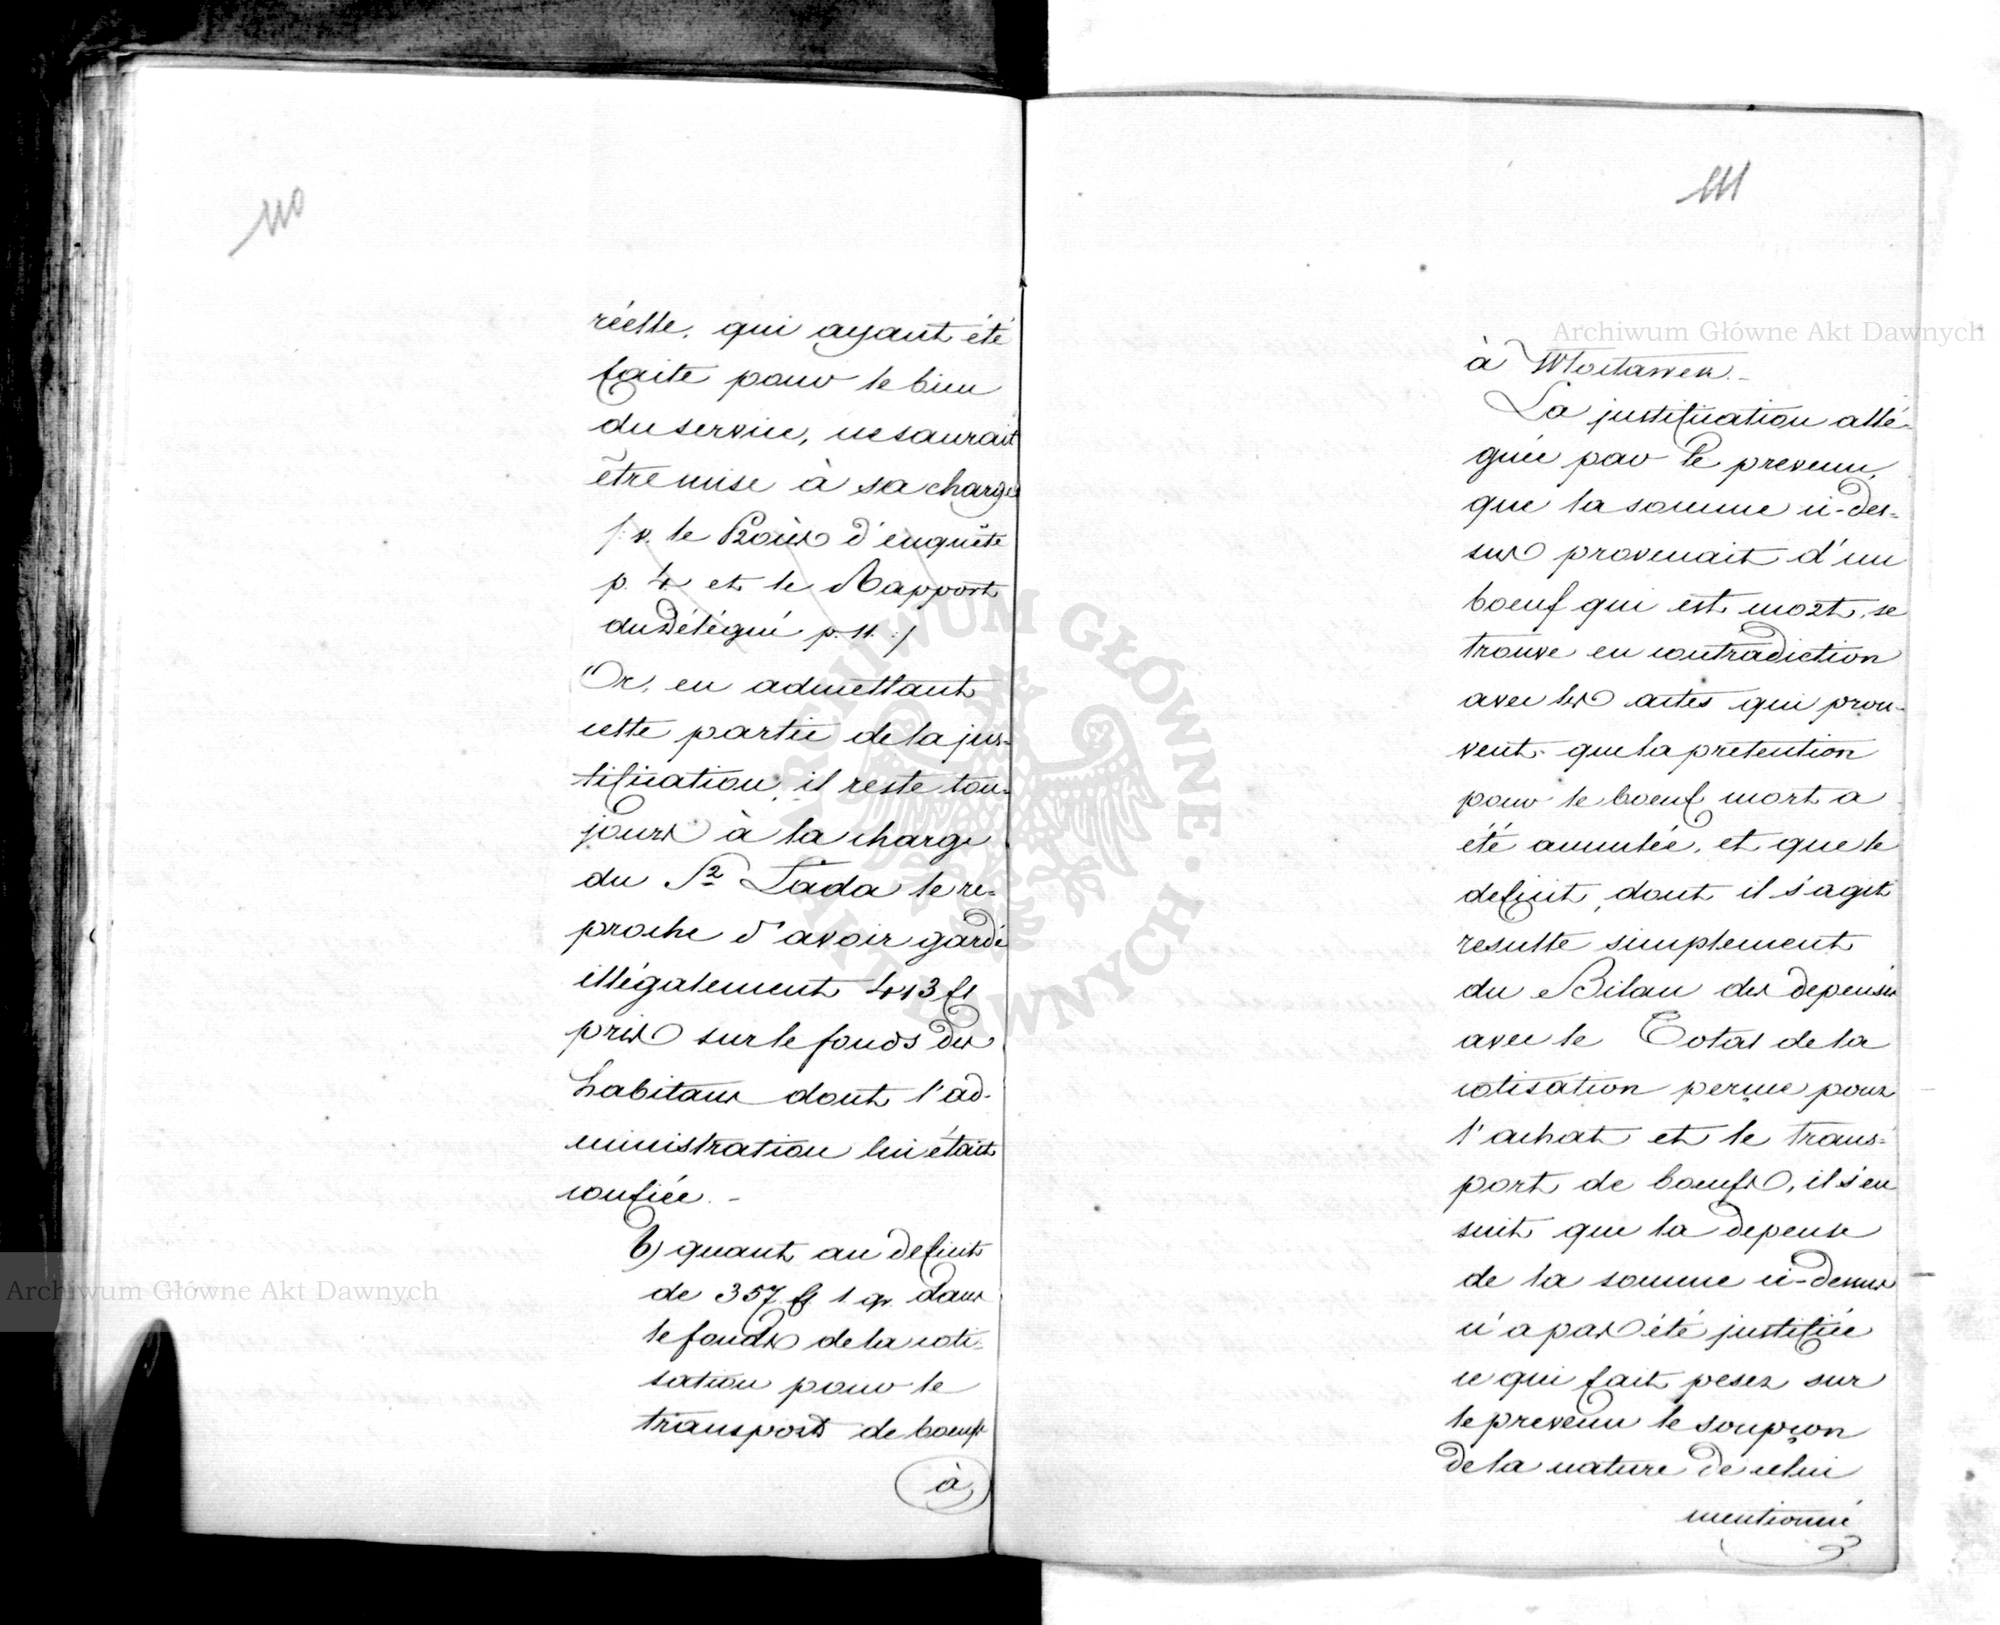 110
réelle, qui ayant été
faite pour le bien
du service, ne saurait
être mise à sa charge
/: v. le Précis d'enquête
p. 4 et le Rapport
du Délégué p. 11. :/
Or, en admettant
cette partie de la jus-
tification, il reste tou-
jours à la charge
du Sr Lada le re-
proche d'avoir gardé
illégalement 413 fl
pris sur le fonds des
habitans dont l'ad-
ministration lui était
confiée. -
b) quant au deficit
de 357 fl 1 gr. dans
le fonds de la coti-
sation pour le
transport de boeufs
à
111
à Wloclawek. -
La justification allé-
guée par le prevenu,
que la somme ci-des-
sus provenait d'un
boeuf qui est mort, se
trouve en contradiction
avec les actes qui prou-
vent que la pretention
pour le boeuf mort a
été annulée, et que le
deficit, dont il s'agit
resulte simplement
du Bilan des depenses
avec le Total de la
cotisation perçue pour
l'achat et le trans-
port de boeufs, il s'en
suit que la depense
de la somme ci-dessus
n'a pas été justifiée
ce qui fait peser sur
le prevenu le soupçon
de la nature de celui
mentionné
Archiwum Główne Akt Dawnych
Archiwum Główne Akt Dawnych
ARCHIWUM GŁÓWNE AKT DAWNYCH